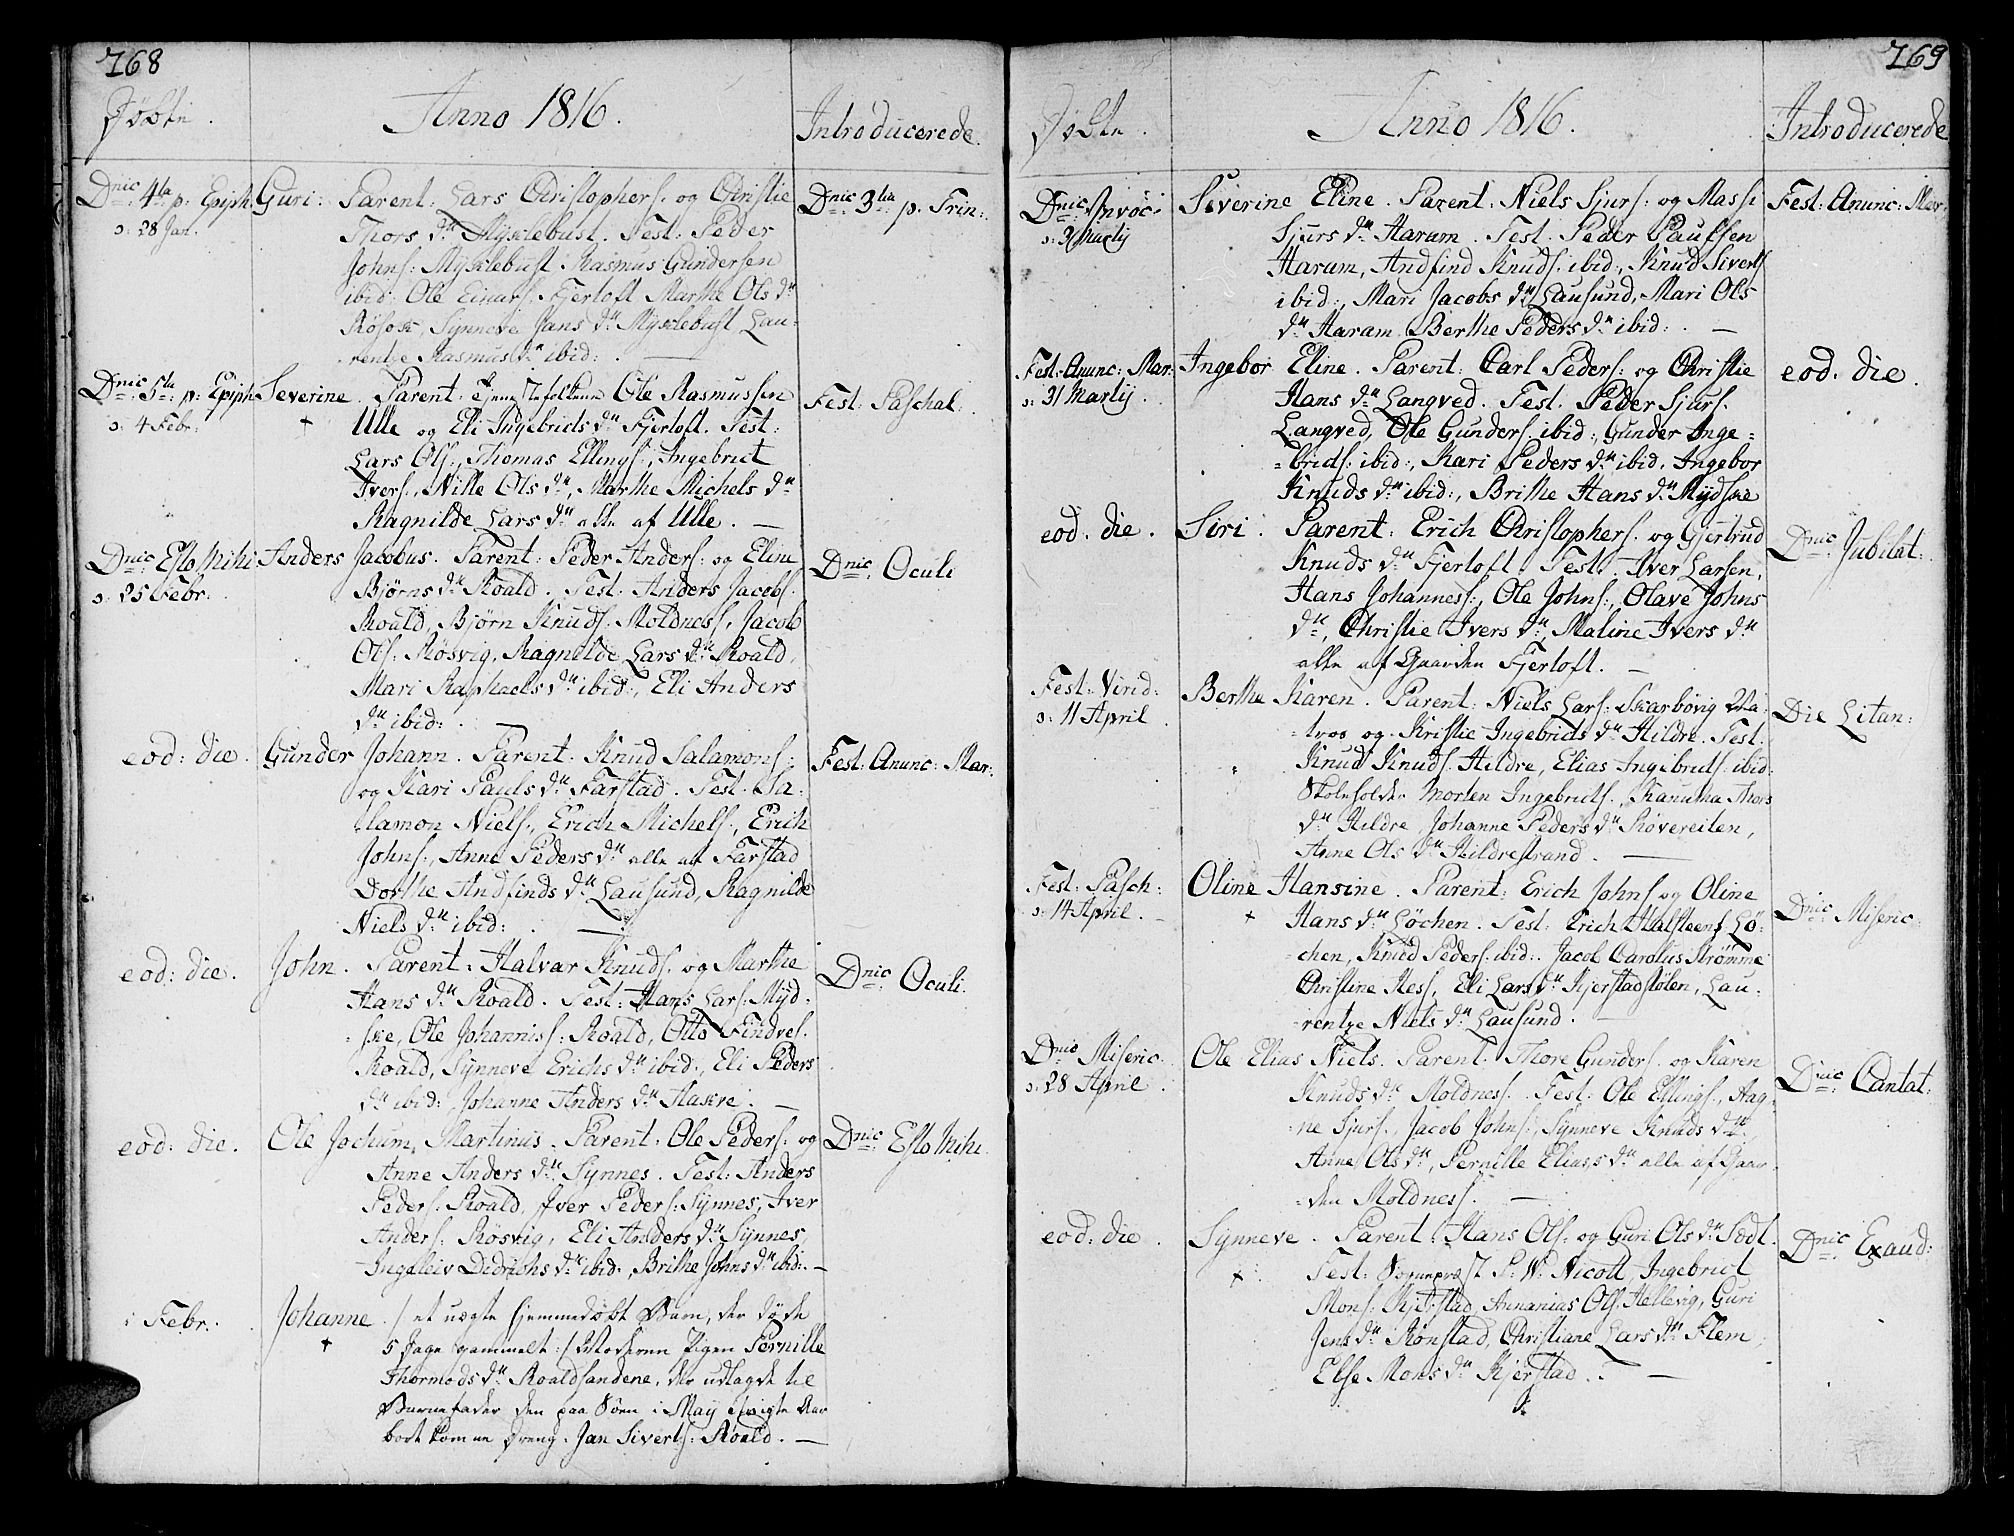 168
Døbte.
Anno 1816.
Introducerede
Dnic: 4ta p: Epiph:
ɔ: 28 Jan.
Guri: Parent: Lars Christophers: og Christie
Thors dtr Myklebust. Test: Peder
Johns: Myklebust Rasmus Gundersen
ibid: Ole Einars: Fjertoft Marthe Ols dtr
Røsok, Synneve Jans dtr Myklebust Lau-
rentze Rasmus dtr ibid: . —
Dnic: 3tia p. Trin:
Dnic: 5ta p: Epiph:
ɔ: 4 Febr:
Severine. Parent: Ole Rasmussen
+
Ulle og Eli Ingebricts dtr Fjertoft. Test:
Lars Ols:, Thomas Ellings:, Ingebrict
Ivers:, Nille Ols dtr, Marthe Michels dtr
Ragnilde Lars dtr alle af Ulle. —
Fest: Paschal:
Dnic: Esto Mihi
ɔ: 25 Febr:
Anders Jacobus. Parent: Peder Anders: og Eline
Bjørns dtr Roald. Test: Anders Jacobs:
Roald, Bjørn Knuds: Moldness, Jacob
Ols: Røsvig, Ragnilde Lars dtr Roald,
Mari Raphaels dtr ibid:, Eli Anders
dtr ibid: . —
Dnic: Oculi
eod: die.
Gunder Johann. Parent: Knud Salamons:
og Kari Pauls dtr Farstad. Test. Sa-
lamon Niels:, Erich Michels:, Erich
Johns:, Anne Peders dtr alle af Farstad
Dorthe Andfinds dtr Lausund, Ragnilde
Niels dtr ibid: . —
Fest: Anunc: Mar:
eod: die.
John. Parent: Halvar Knuds: og Marthe
Hans dtr Roald. Test: Hans Lars: Myd-
ske, Ole Johanness: Roald, Otto Findves:
Roald, Synneve Erichs dtr ibid:, Eli Peders
dtr ibid: Johanne Anders dtr Haskre. —
Dnic: Oculi.
eod: die.
Ole Jochum Martinus. Parent: Ole Peders: og
Anne Anders dtr Synnes. Test: Anders
Peders: Roald, Iver Peders: Synnes, Iver
Anders: Røsvig, Eli Anders dtr Synnes,
Ingeleiv Didrichs dtr ibid:, Brithe Johns dtr ibid: —
Dnic: Esto Mihi.
i Febr:
Johanne. / et uægte hjemmedøbt Barn, der døde
+
5 Dage gammelt: / Moderen Pigen Pernille
Thormods dtr Roaldsandene, der udlagde til
Barnefader den paa Søen i May Aar
bort komne Dreng Jan Siverts: Roald. —
169
Døbte.
Anno 1816.
Introducerede
Dnic: Invoc:
ɔ: 3 Martij
Severine Eline. Parent: Niels Sjurs: og Massi
Sjurs dtr Haram. Test. Peder Paulsen
Haram, Andfind Knuds: ibid:, Knud Siverts
ibid:, Mari Jacobs dtr Lausund, Mari Ols
dtr Haram Berthe Peders dtr ibid: . —
Fest: Anunc: Mar:
Fest: Anunc: Mar:
ɔ: 31 Martij.
Ingebor Eline. Parent: Carl Peders: og Christie
Hans dtr Langved. Test. Peder Sjurs:
Langved, Ole Gunders: ibid:, Gunder Inge-
-brids: ibid:, Kari Peders dtr ibid. Ingebor
Knuds dtr ibid:, Brithe Hans dtr Mydske
eod. die.
eod: die.
Siri. Parent: Erich Christophers: og Gjertrud
Knuds dtr Fjertoft. Test: Iver Larsen,
Hans Johanness:, Ole Johns:, Olave Johns
dtr, Christie Ivers dtr, Maline Ivers dtr
alle af Gaarden Fjertoft. —
Dnic: Jubilat:
Fest: Virid:
ɔ: 11 April.
Berthe Karen. Parent: Niels Lars: Skarbøvig Ma-
-tros og Kristie Ingebricts dtr Hildre. Test:
Knud Knuds: Hildre, Elias Ingebrids: ibid:
Skoleholder Morten Ingebricts:, Kanutha Thors
dtr Hildre, Johanne Peders dtr Røvereiten,
Anne Ols dtr Hildrestrand. —
Die Litan:
Fest: Pasch:
ɔ: 14 April. -
Oline Hansine. Parent: Erich Johns: og Oline
+
Hans dtr Løchen. Test: Erich Halsteens: Lø-
-chen, Knud Peders: ibid:. Jacob Carolus Strømme
Christine Hess, Eli Lars dtr Kjerstadstølen, Lau-
-rentze Niels dtr Lausund. —
Dnic: Miseric:
Dnic: Miseric:
ɔ: 28 April.
Ole Elias Niels. Parent: Thore Gunders: og Karen
Knuds dtr Moldness. Test: Ole Ellings:, Aag-
ne Sjurs:, Jacob Johns:, Synneve Knuds dtr,
Anne Ols dtr, Pernille Elias's dtr alle af Gaar-
-den Moldness. —
Dnic: Cantat:
eod: die.
Synneve. Parent: Hans Ols: og Guri Ols dtr Sødt.
+
Test: Sognepræst P. W. Nicoll, Ingebrict
Mons: Kjerstad, Annanias Ols: Hellevig, Guri
Jens dtr Rønstad, Christiane Lars dtr Flem,
Else Mons dtr Kjerstad. —
Dnic: Exaud: